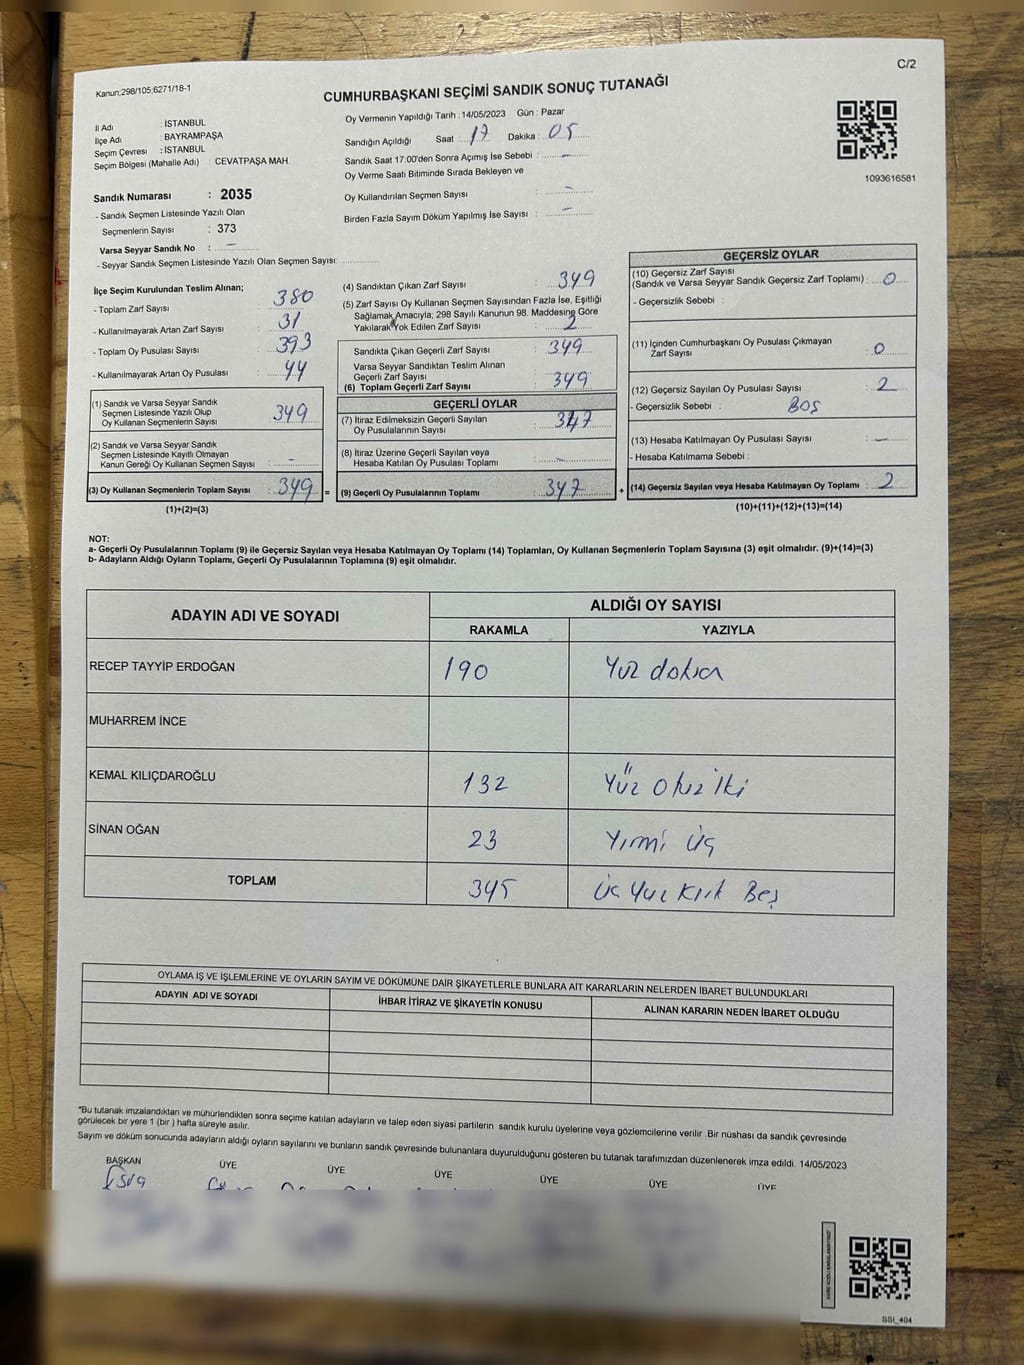 C/2
Kanun:298/105;6271/18-1
CUMHURBAŞKANI SEÇİMİ SANDIK SONUÇ TUTANAĞI
İl Adı : İSTANBUL
İlçe Adı : BAYRAMPAŞA
Seçim Çevresi : İSTANBUL
Seçim Bölgesi (Mahalle Adı) : CEVATPAŞA MAH.
Sandık Numarası : 2035
- Sandık Seçmen Listesinde Yazılı Olan
Seçmenlerin Sayısı : 373
Varsa Seyyar Sandık No : –
- Seyyar Sandık Seçmen Listesinde Yazılı Olan Seçmen Sayısı:
Oy Vermenin Yapıldığı Tarih : 14/05/2023 Gün : Pazar
Sandığın Açıldığı Saat : 17 Dakika : 05
Sandık Saat 17:00'den Sonra Açımış İse Sebebi : –
Oy Verme Saati Bitiminde Sırada Bekleyen ve
Oy Kullandırılan Seçmen Sayısı : –
Birden Fazla Sayım Döküm Yapılmış İse Sayısı : –
1093616581
İlçe Seçim Kurulundan Teslim Alınan;
- Toplam Zarf Sayısı : 380
- Kullanılmayarak Artan Zarf Sayısı : 31
- Toplam Oy Pusulası Sayısı : 393
- Kullanılmayarak Artan Oy Pusulası : 44
(1) Sandık ve Varsa Seyyar Sandık
Seçmen Listesinde Yazılı Olup
Oy Kullanan Seçmenlerin Sayısı : 349
(2) Sandık ve Varsa Seyyar Sandık
Seçmen Listesinde Kayıtlı Olmayan
Kanun Gereği Oy Kullanan Seçmen Sayısı : –
(3) Oy Kullanan Seçmenlerin Toplam Sayısı : 349 =
(1)+(2)=(3)
(4) Sandıktan Çıkan Zarf Sayısı : 349
(5) Zarf Sayısı Oy Kullanan Seçmen Sayısından Fazla İse, Eşitliği
Sağlamak Amacıyla; 298 Sayılı Kanunun 98. Maddesine Göre
Yakılarak Yok Edilen Zarf Sayısı : 2
Sandıkta Çıkan Geçerli Zarf Sayısı : 349
Varsa Seyyar Sandıktan Teslim Alınan
Geçerli Zarf Sayısı
(6) Toplam Geçerli Zarf Sayısı : 349
GEÇERLİ OYLAR
(7) İtiraz Edilmeksizin Geçerli Sayılan
Oy Pusulalarının Sayısı : 347
(8) İtiraz Üzerine Geçerli Sayılan veya
Hesaba Katılan Oy Pusulası Toplamı : –
(9) Geçerli Oy Pusulalarının Toplamı : 347 +
GEÇERSİZ OYLAR
(10) Geçersiz Zarf Sayısı
(Sandık ve Varsa Seyyar Sandık Geçersiz Zarf Toplamı) : 0
- Geçersizlik Sebebi :
(11) İçinden Cumhurbaşkanı Oy Pusulası Çıkmayan
Zarf Sayısı : 0
(12) Geçersiz Sayılan Oy Pusulası Sayısı : 2
- Geçersizlik Sebebi : BOŞ
(13) Hesaba Katılmayan Oy Pusulası Sayısı : –
- Hesaba Katılmama Sebebi :
(14) Geçersiz Sayılan veya Hesaba Katılmayan Oy Toplamı : 2
(10)+(11)+(12)+(13)=(14)
NOT:
a- Geçerli Oy Pusulalarının Toplamı (9) ile Geçersiz Sayılan veya Hesaba Katılmayan Oy Toplamı (14) Toplamları, Oy Kullanan Seçmenlerin Toplam Sayısına (3) eşit olmalıdır. (9)+(14)=(3)
b- Adayların Aldığı Oyların Toplamı, Geçerli Oy Pusulalarının Toplamına (9) eşit olmalıdır.
ADAYIN ADI VE SOYADI
ALDIĞI OY SAYISI
RAKAMLA YAZIYLA
RECEP TAYYİP ERDOĞAN 190 Yüz doksan
MUHARREM İNCE
KEMAL KILIÇDAROĞLU 132 Yüz Otuz İki
SİNAN OĞAN 23 Yirmi üç
TOPLAM 345 Üç Yüz Kırk Beş
OYLAMA İŞ VE İŞLEMLERİNE VE OYLARIN SAYIM VE DÖKÜMÜNE DAİR ŞİKAYETLERLE BUNLARA AİT KARARLARIN NELERDEN İBARET BULUNDUKLARI
ADAYIN ADI VE SOYADI İHBAR İTİRAZ VE ŞİKAYETİN KONUSU ALINAN KARARIN NEDEN İBARET OLDUĞU
*Bu tutanak imzalandıktan ve mühürlendikten sonra seçime katılan adayların ve talep eden siyasi partilerin sandık kurulu üyelerine veya gözlemcilerine verilir. Bir nüshası da sandık çevresinde
görülecek bir yere 1 (bir) hafta süreyle asılır.
Sayım ve döküm sonucunda adayların aldığı oyların sayılarını ve bunların sandık çevresinde bulunanlara duyurulduğunu gösteren bu tutanak tarafımızdan düzenlenerek imza edildi. 14/05/2023
BAŞKAN ÜYE ÜYE ÜYE ÜYE ÜYE ÜYE
SSI_404